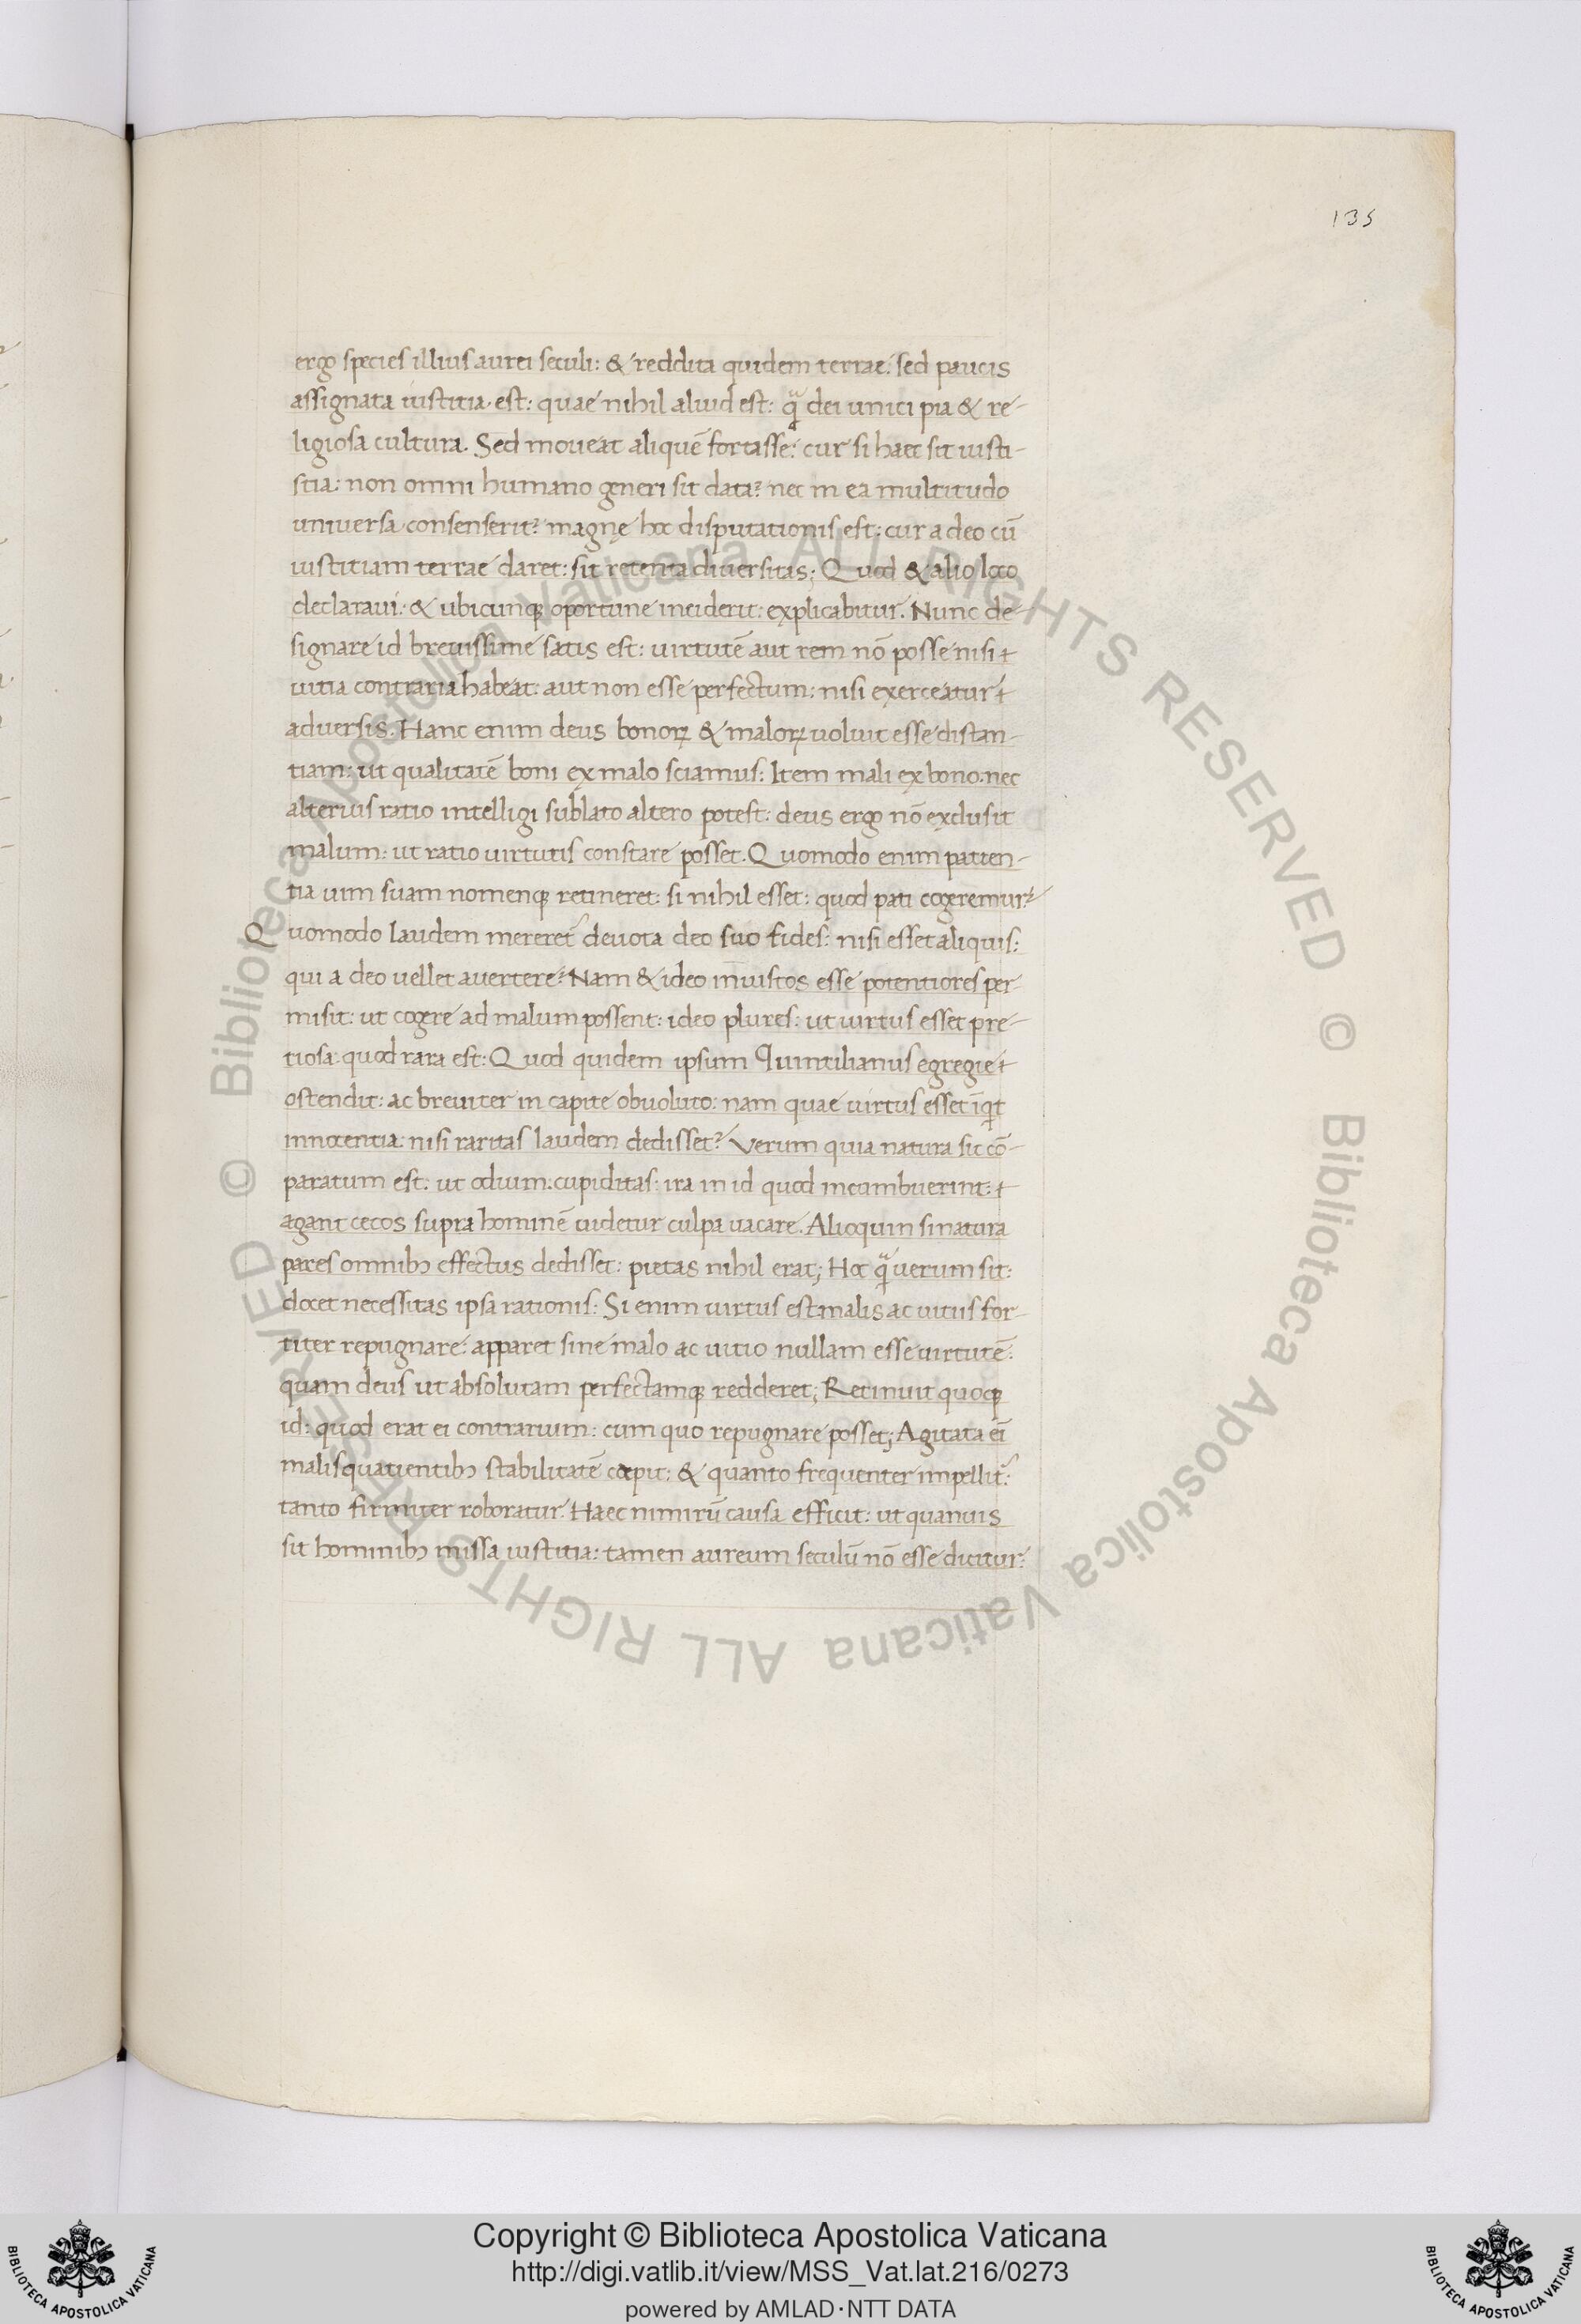 135
ergo species illius aurei seculi: & reddita quidem terrae: sed paucis
assignata iustitia est: quae nihil aliud est: q̃ dei unici pia & re-
ligiosa cultura. Sed moueat aliquē fortasse: cur si haec sit iusti-
stia: non omni humano generi sit data? nec in ea multitudo
universa consenserit? magnę hoc disputationis est: cur a deo cū
iustitiam terrae daret: sit retenta diversitas; Quod & alio loco
declaraui: & ubicunq; oportune inciderit: explicabitur. Nunc de-
signare id brevissime satis est: virtutē aut rem nō posse nisi
uitia contraria habeat: aut non esse perfectum: nisi exerceatur
adversis. Hanc enim deus bonoꝝ & maloꝝ uoluit esse distan-
tiam: ut qualitatē boni ex malo sciamus: Item mali ex bono: nec
alterius ratio intelligi sublato altero potest: deus ergo nō exclusit
malum: ut ratio uirtutis constare posset. Quomodo enim patien-
tia uim suam nomenq; retineret: si nihil esset: quod pati cogeremur?
Quomodo laudem mereret᷑ deuota deo suo fides: nisi esset aliquis:
qui a deo uellet avertere? Nam & ideo iniustos esse potentiores per
misit: ut cogere ad malum possent: ideo plures: ut uirtus esset pre-
tiosa quod rara est: Quod quidem ipsum Quintilianus egregie
ostendit: ac breuiter in capite obuoluto: nam quae uirtus esset īqt
innocentia: nisi raritas laudem dedisset? Verum quia natura sic cō-
paratum est: ut odium: cupiditas: ira in id quod incumbuerint:
agant cecos supra hominē uidetur culpa uacare. Alioquin si natura
pares omnibꝫ effectus dedisset: pietas nihil erat; Hoc q̃ verum sit:
docet necessitas ipsa rationis: Si enim uirtus est malis ac uitiis for-
titer repugnare: apparet sine malo ac uitio nullam esse uirtutē:
quam deus ut absolutam perfectamq; redderet; Retinuit quoq;
id: quod erat ei contrarium: cum quo repugnare posset; Agitata eī
malis quatientibꝫ stabilitatē coepit: & quanto frequenter impellit᷑:
tanto firmiter roboratur. Haec nimirū causa efficit: ut quanuis
sit hominibꝫ missa iustitia: tamen aureum seculū nō esse dicitur:
© Biblioteca Apostolica Vaticana ALL RIGHTS RESERVED © Biblioteca Apostolica Vaticana ALL RIGHTS RESERVED
BIBLIOTECA APOSTOLICA VATICANA
Copyright © Biblioteca Apostolica Vaticana
http://digi.vatlib.it/view/MSS_Vat.lat.216/0273
powered by AMLAD·NTT DATA
BIBLIOTECA APOSTOLICA VATICANA